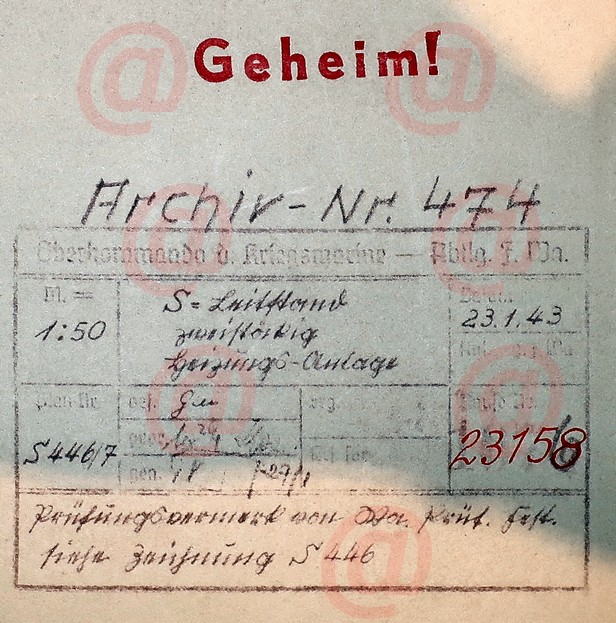 Geheim!
Archiv-Nr. 474
Oberkommando d. Kriegsmarine — Abtlg. F. Wa.
M. =
1:50
S=Leitstand
zweistöckig
Heizungs-Anlage
23.1.43
Plan-Nr.
S446/7
gez.
gepr.
gen.
23158
Prüfungsvermerk von Wa. Prüf. Fest.
siehe Zeichnung S 446